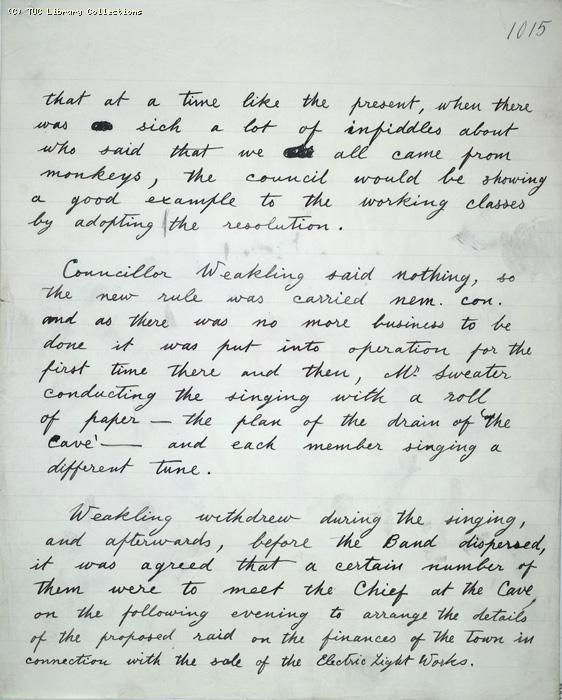 (C) TUC Library Collections
1015
that at a time like the present, when there
was sich a lot of infiddles about
who said that we all came from
monkeys, the council would be showing
a good example to the working classes
by adopting the resolution.
Councillor Weakling said nothing, so
the new rule was carried nem. con.
and as there was no more business to be
done it was put into operation for the
first time there and then, Mr Sweater
conducting the singing with a roll
of paper — the plan of the drain of 'the
Cave' — and each member singing a
different tune.
Weakling withdrew during the singing,
and afterwards, before the Band dispersed,
it was agreed that a certain number of
them were to meet the Chief at the Cave,
on the following evening to arrange the details
of the proposed raid on the finances of the town in
connection with the sale of the Electric Light Works.